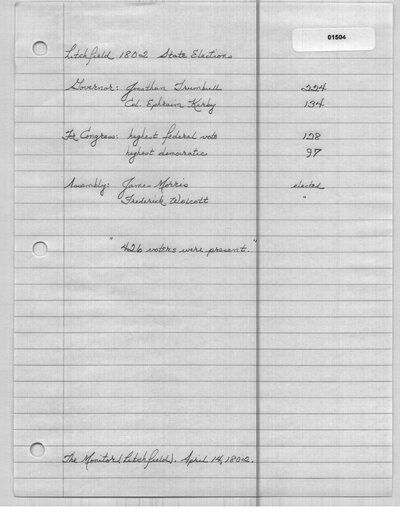 01504
Litchfield 1802 State Elections
Governor: Jonathan Trumbull 224
Col. Ephraim Kirby 134
For Congress: highest federal vote 128
highest democratic 97
Assembly: James Morris elected
Frederick Wolcott "
"426 voters were present."
The Monitor (Litchfield). April 14, 1802.